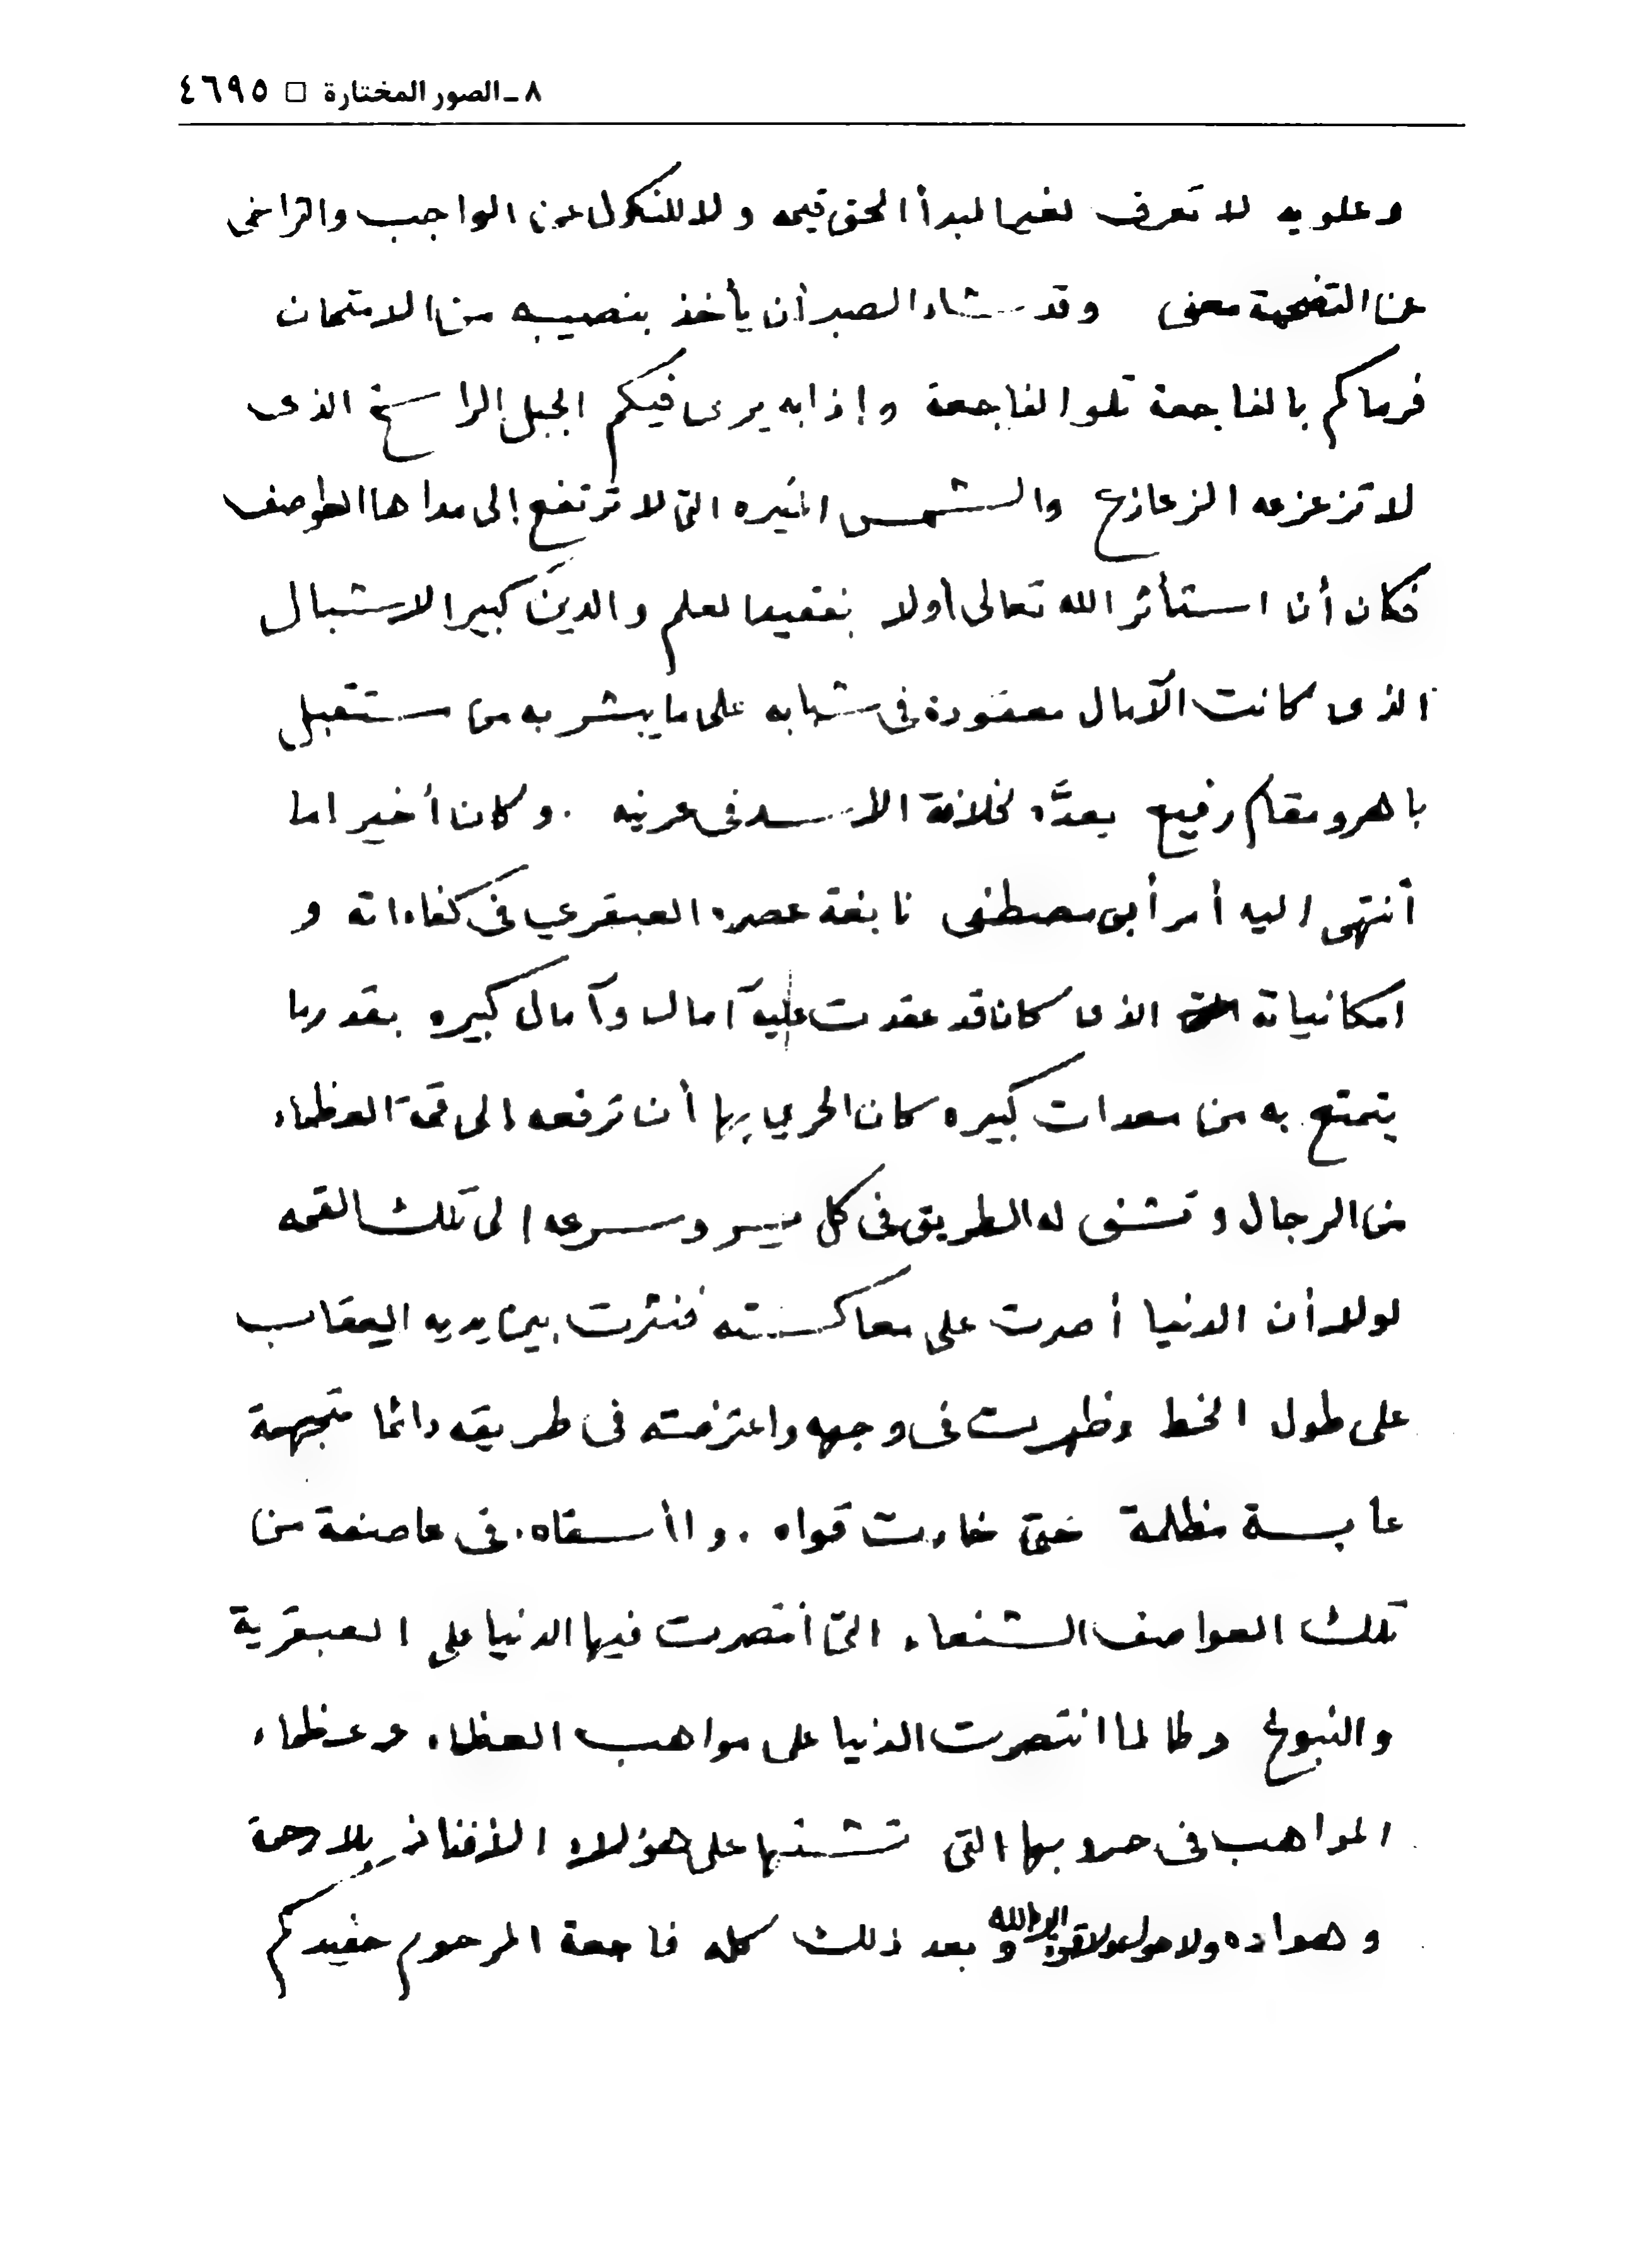 ٨ ـ الصور المختارة □ ٤٦٩٥
وعلويه لا تعرف لغير المبدأ الحق قيمه ولا للنكول عن الواجب والتراخى
عن التضحية معنى وقد شاء الصبر أن يأخذ بنصيبه من الامتحان
فرماكم بالفاجعة تلو الفاجعة وإذا به يرى فيكم الجبل الراسخ الذى
لا تزعزعه الزعازع والشمس النيره التى لا ترتفع إلى مداها العواصف
فكان أن استأثر الله تعالى أولا بفقيد العلم والدين كبير الاشبال
الذى كانت الآمال معقودة فى شبابه على ما يبشر به من مستقبل
باهر ومقام رفيع يعدَّه لخلافة الأسد فى عرينه . وكان أخيرا ما
أنتهى اليه أمر أبى مصطفى نابغة عصره العبقري فى كفاءاته و
امكانياته الذى كان قد عقدت عليه آمالا وآمال كبيره بقدر ما
يتمتع به من معدات كبيره كان الحري بها أن ترفعه الى قمة العظماء
من الرجال وتشق له الطريق فى كل يسر وسرعه الى تلك القمه
لولا أن الدنيا أصرت على معاكسته فنثرت بين يديه العقاب
على طول الخط وظهرت فى وجهه واعترضته فى طريقه دائما متجهمة
عابسة مظلمة حتى خارت قواه . وا أسفاه . فى عاصفة من
تلك العواصف الشنعاء التى أنتصرت فيها الدنيا على العبقرية
والنبوغ وطالما انتصرت الدنيا على مواهب العظماء وعظماء
المواهب فى حروبها التى تشنها على هؤلاء الأفذاذ بلا رحمة
وهواده ولا حول ولا قوة الا بالله و بعد ذلك كله فاجعة المرحوم حفيدكم